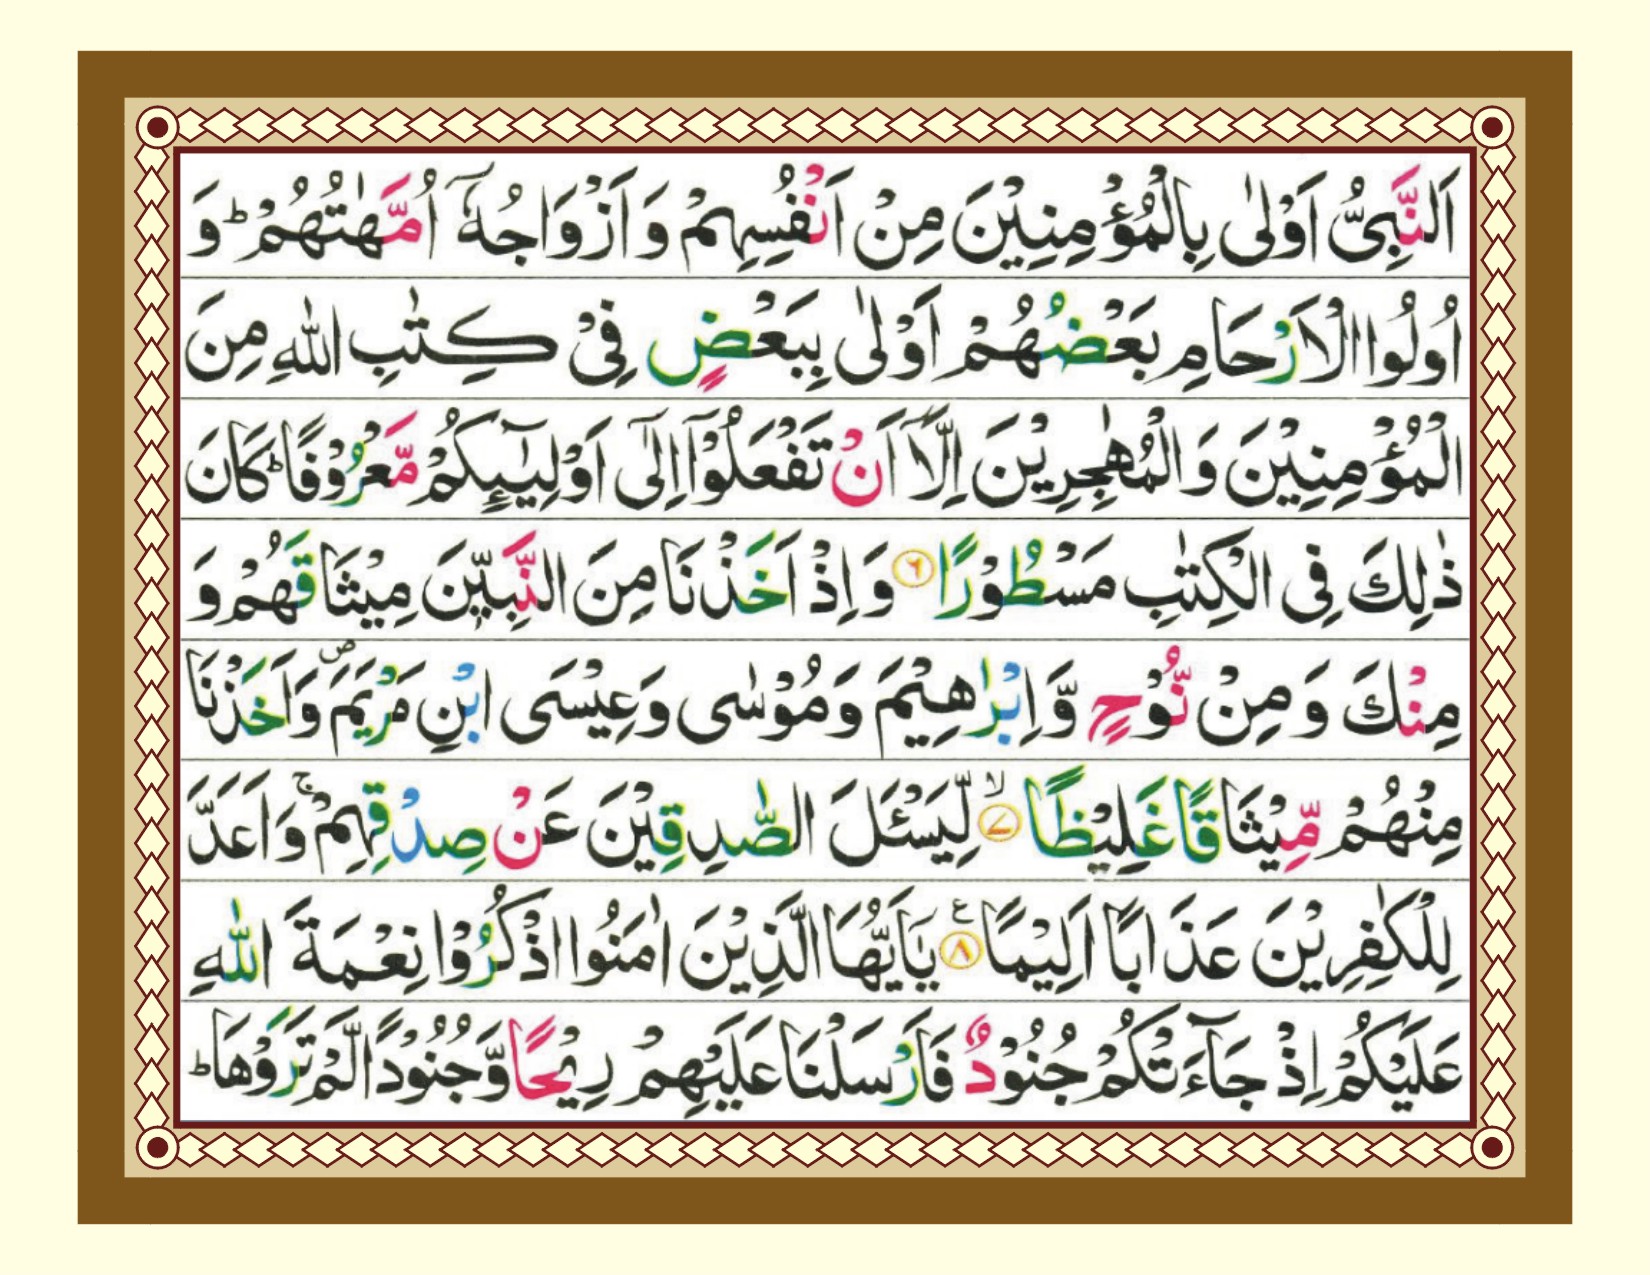 اَلنَّبِىُّ اَوْلٰى بِالْمُؤْمِنِيْنَ مِنْ اَنْفُسِهِمْ وَ اَزْوَاجُهٗۤ اُمَّهٰتُهُمْ ؕ وَ
اُولُوا الْاَرْحَامِ بَعْضُهُمْ اَوْلٰى بِبَعْضٍ فِىْ كِتٰبِ اللّٰهِ مِنَ
الْمُؤْمِنِيْنَ وَ الْمُهٰجِرِيْنَ اِلَّاۤ اَنْ تَفْعَلُوْۤا اِلٰٓى اَوْلِيٰٓـِٕكُمْ مَّعْرُوْفًا ؕ كَانَ
ذٰلِكَ فِى الْكِتٰبِ مَسْطُوْرًا ۶ وَ اِذْ اَخَذْنَا مِنَ النَّبِيّٖنَ مِيْثَاقَهُمْ وَ
مِنْكَ وَ مِنْ نُّوْحٍ وَّ اِبْرٰهِيْمَ وَ مُوْسٰى وَ عِيْسَى ابْنِ مَرْيَمَ ۪ وَ اَخَذْنَا
مِنْهُمْ مِّيْثَاقًا غَلِيْظًا ۷ ۙ لِّيَسْـَٔلَ الصّٰدِقِيْنَ عَنْ صِدْقِهِمْ ۚ وَ اَعَدَّ
لِلْكٰفِرِيْنَ عَذَابًا اَلِيْمًا ۸ ع يٰۤاَيُّهَا الَّذِيْنَ اٰمَنُوا اذْكُرُوْا نِعْمَةَ اللّٰهِ
عَلَيْكُمْ اِذْ جَآءَتْكُمْ جُنُوْدٌ فَاَرْسَلْنَا عَلَيْهِمْ رِيْحًا وَّ جُنُوْدًا لَّمْ تَرَوْهَا ؕ